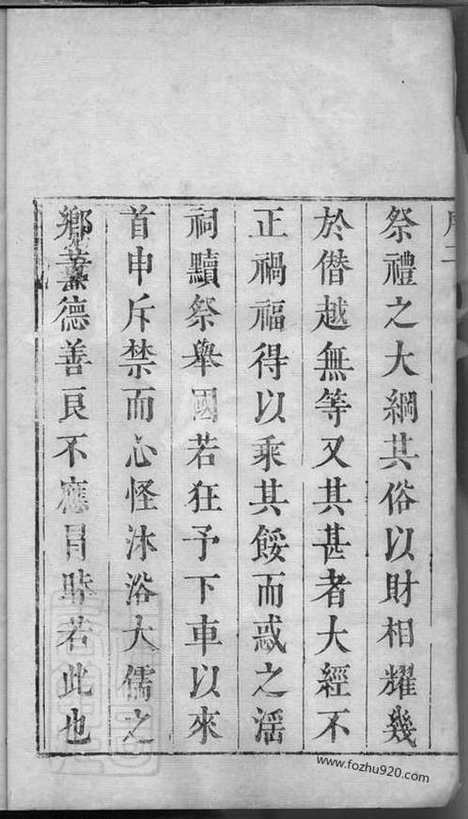 祭禮之大綱其俗以財相耀幾
於僭越無等又其甚者大經不
正禍福得以乘其餒而惑之淫
祠黷祭舉國若狂予下車以來
首申斥禁而心怪沐浴大儒之
鄉薰德善良不應冒昧若此也
www.fozhu920.com